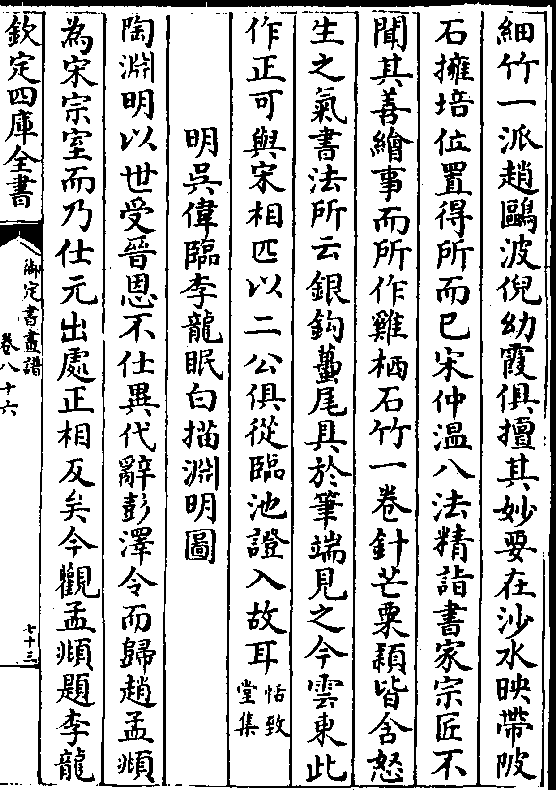 細竹一派趙鷗波倪幼霞俱擅其妙要在沙水映帶陂
石擁培位置得所而已宋仲溫八法精詣書家宗匠不
聞其善繪事而所作雞栖石竹一卷針芒粟顆皆含怒
生之氣書法所云銀鈎蠆尾具於筆端見之今雲東此
作正可與宋相匹以二公俱從臨池證入故耳恬致堂集
明吳偉臨李龍眠白描淵明圖
陶淵明以世受晉恩不仕異代辭彭澤令而歸趙孟頫
為宋宗室而乃仕元出處正相反矣今觀孟頫題李龍
欽定四庫全書
御定書畫譜
卷八十六
七十三